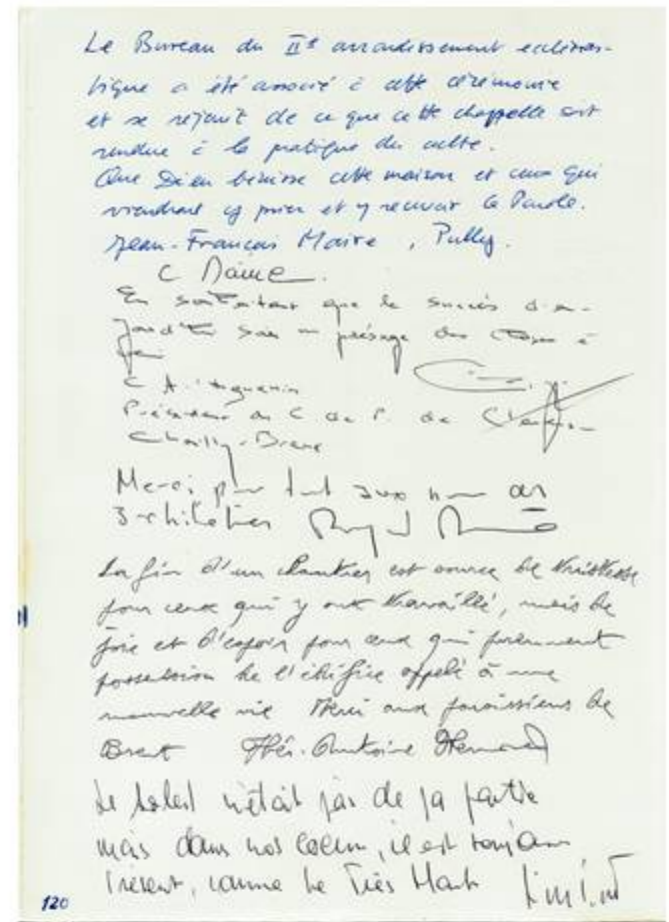 Le Bureau du IIe arrondissement ecclésias-
tique a été associé à cette cérémonie
et se réjouit de ce que cette chappelle soit
rendue à la pratique du culte.
Que Dieu bénisse cette maison et ceux qui
viendront y prier et y recevoir la Parole.
Jean-François Maire, Pully.
C Maire.
En souhaitant que le succès d'au-
jourd'hui soit un présage des choses à
Président du C. de P. de Clarens
Chailly-Brent
Merci pour tout aux nom des
architectes
La fin d'un chantier est source de tristesse
pour ceux qui y ont travaillé, mais de
joie et d'espoir pour ceux qui prennent
possession de l'édifice appelé à une
nouvelle vie Merci aux paroissiens de
Brent
Le Soleil n'était pas de la partie
mais dans nos coeurs, il est toujours
présent, comme le Très Haut
120